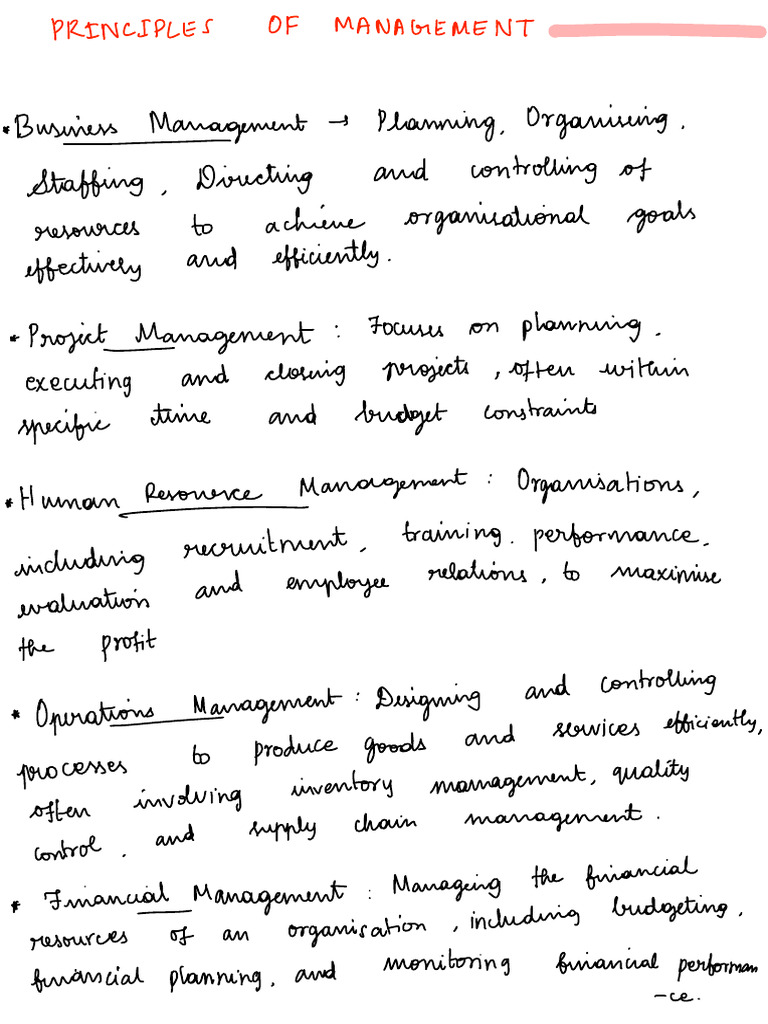 PRINCIPLES OF MANAGEMENT
* Business Management → Planning, Organising,
Staffing, Directing and controlling of
resources to achieve organisational goals
effectively and efficiently.
* Project Management : Focuses on planning,
executing and closing projects, often within
specific time and budget constraints
* Human Resource Management : Organisations,
including recruitment, training, performance,
evaluation and employee relations, to maximise
the profit
* Operations Management : Designing and controlling
processes to produce goods and services efficiently,
often involving inventory management, quality
control, and supply chain management.
* Financial Management : Managing the financial
resources of an organisation, including budgeting,
financial planning, and monitoring financial performan
-ce.